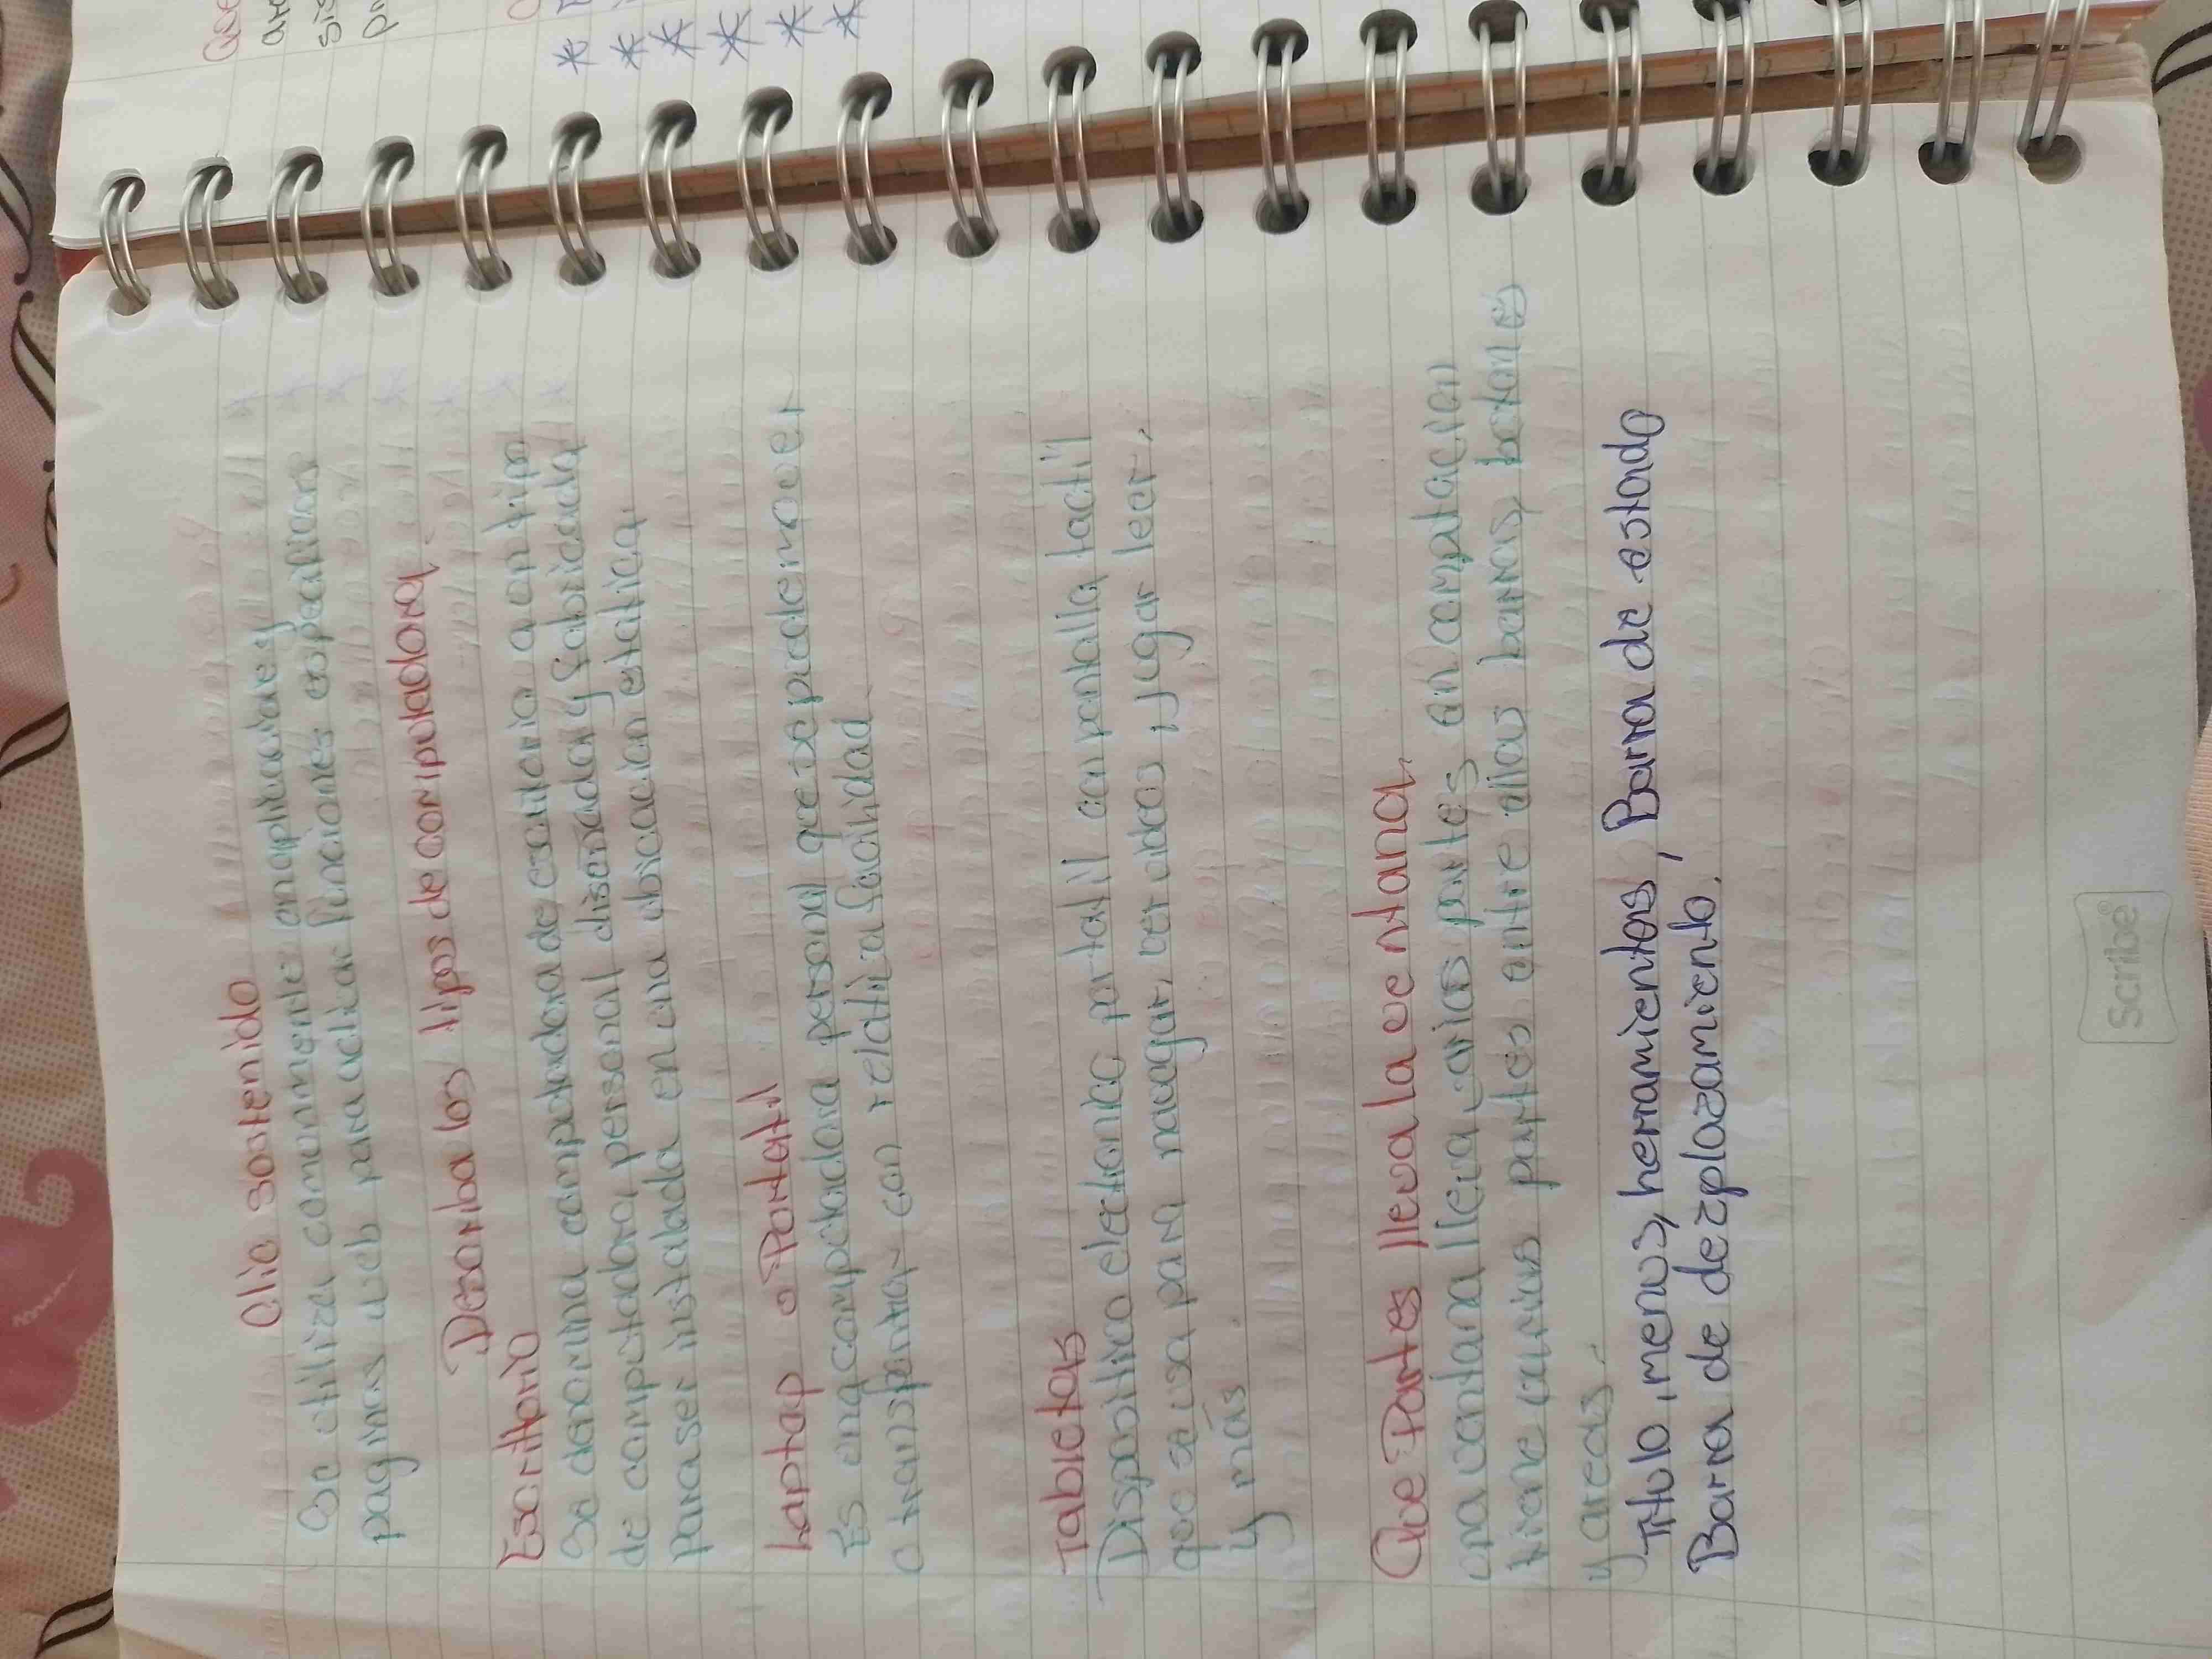 Clic sostenido
Se utiliza comunmente en aplicaciones y
paginas web para activar funciones especificas
Describa los tipos de computadora.
Escritorio
Se denomina computadora de escritorio a un tipo
de computadora personal diseñada y fabricada
para ser instalada en una ubicacion estatica.
Laptop o Portatil
Es una computadora personal que se puede mover
o transportar con relativa facilidad
Tabletas
Dispositivo electronico portatil con pantalla tactil
que se usa para navegar, ver videos, jugar leer,
y más
Que Partes lleva la ventana.
una ventana lleva varias partes en computacion
tiene varias partes entre ellas barras, botones
y areas.
Titulo, menus, herramientas, Barra de estado
Barra de dezplazamiento.
Scribe